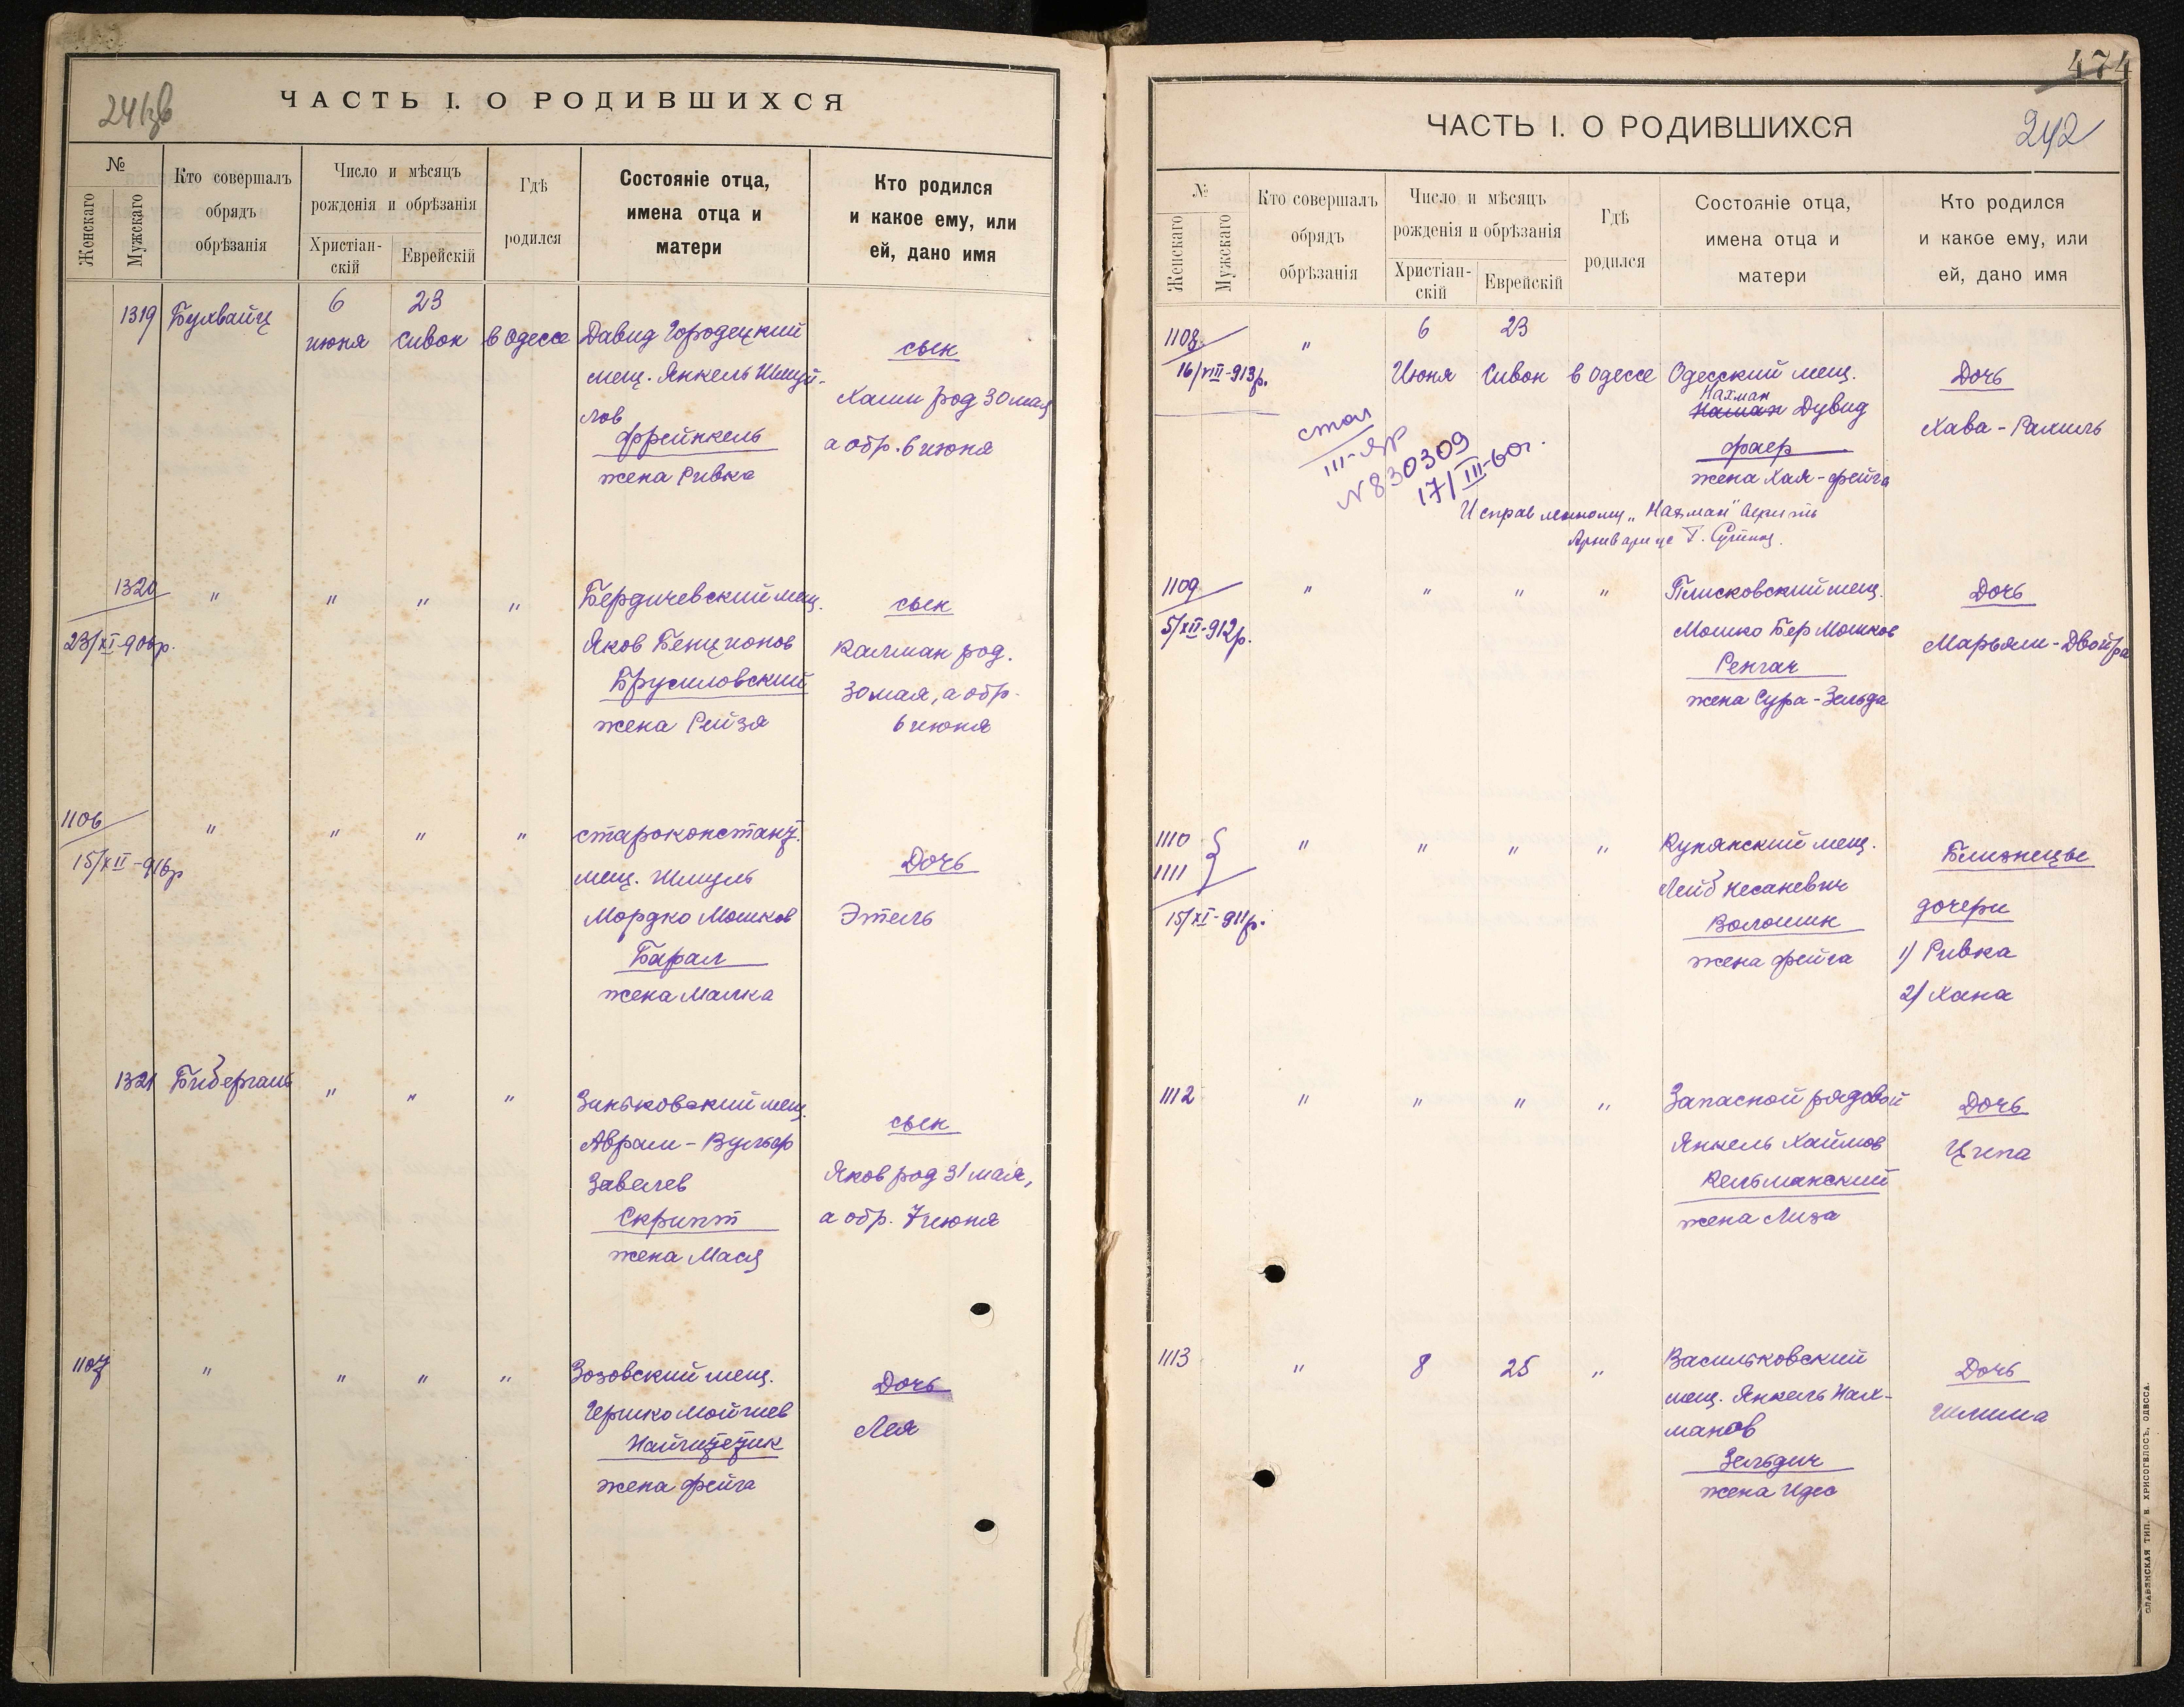 241зв
ЧАСТЬ I. О РОДИВШИХСЯ
№
Женскаго
Мужскаго
Кто совершалъ
обрядъ
обрѣзанія
Число и мѣсяцъ
рожденія и обрѣзанія
Христіан-
скій
Еврейскій
Гдѣ
родился
Состояніе отца,
имена отца и
матери
Кто родился
и какое ему, или
ей, дано имя
1319
6
июня
23
Сивон
в Одессе
Давид Городецкий
мещ. Янкель Шмуй-
лов
Френкель
жена Ривка
сын
род 30 мая
а обр. 6 июня
1320
23/XI-906р.
"
"
"
"
Бердичевский мещ.
Яков Бенционов
Брусиловский
жена Рейзя
сын
Калман род.
30 мая, а обр.
6 июня
1106
15/XII-916р
"
"
"
"
староконстант.
мещ. Шмуль
Мордко Мошков
Барал
жена Малка
Дочь
Этель
1321
Бибергаль
"
"
"
Зиньковский мещ.
Аврам-Вульф
Завелев
Скрипт
жена Мася
сын
Яков род 31 мая,
а обр. 7 июня
1107
"
"
"
"
Зозовский мещ.
Гершко
жена Фейга
Дочь
Лея
474
ЧАСТЬ I. О РОДИВШИХСЯ
242
№
Женскаго
Мужскаго
Кто совершалъ
обрядъ
обрѣзанія
Число и мѣсяцъ
рожденія и обрѣзанія
Христіан-
скій
Еврейскій
Гдѣ
родился
Состояніе отца,
имена отца и
матери
Кто родился
и какое ему, или
ей, дано имя
1108
16/VIII-913р.
"
6
Июня
23
Сивон
в Одессе
Одесский мещ.
Нахман
Дувид
Фаер
жена Хая-Фейга
Дочь
Хава-Рахиль
стол
N 830309
17/III-60г.
Исправленному "Нахман" верить
1109
5/XII-912р.
"
"
"
"
Плисковский мещ.
Мошко Бер Мошков
Ренгач
жена Сура-Зельда
Дочь
Марьям-Двойра
1110
1111
15/XI-911р.
"
"
"
"
Купянский мещ.
Лейб Несаневич
Волошин
жена Фейга
Близнецы
дочери
1) Ривка
2) Хана
1112
"
"
"
"
Запасной рядовой
Янкель Хаймов
Кельманский
жена Лиза
Дочь
Ципа
1113
"
8
25
"
Васильковский
мещ. Янкель Нах-
манов
Зельдич
жена Идес
Дочь
СЛАВЯНСКАЯ ТИП. Е. ХРИСОГЕЛОСЪ, ОДЕССА.